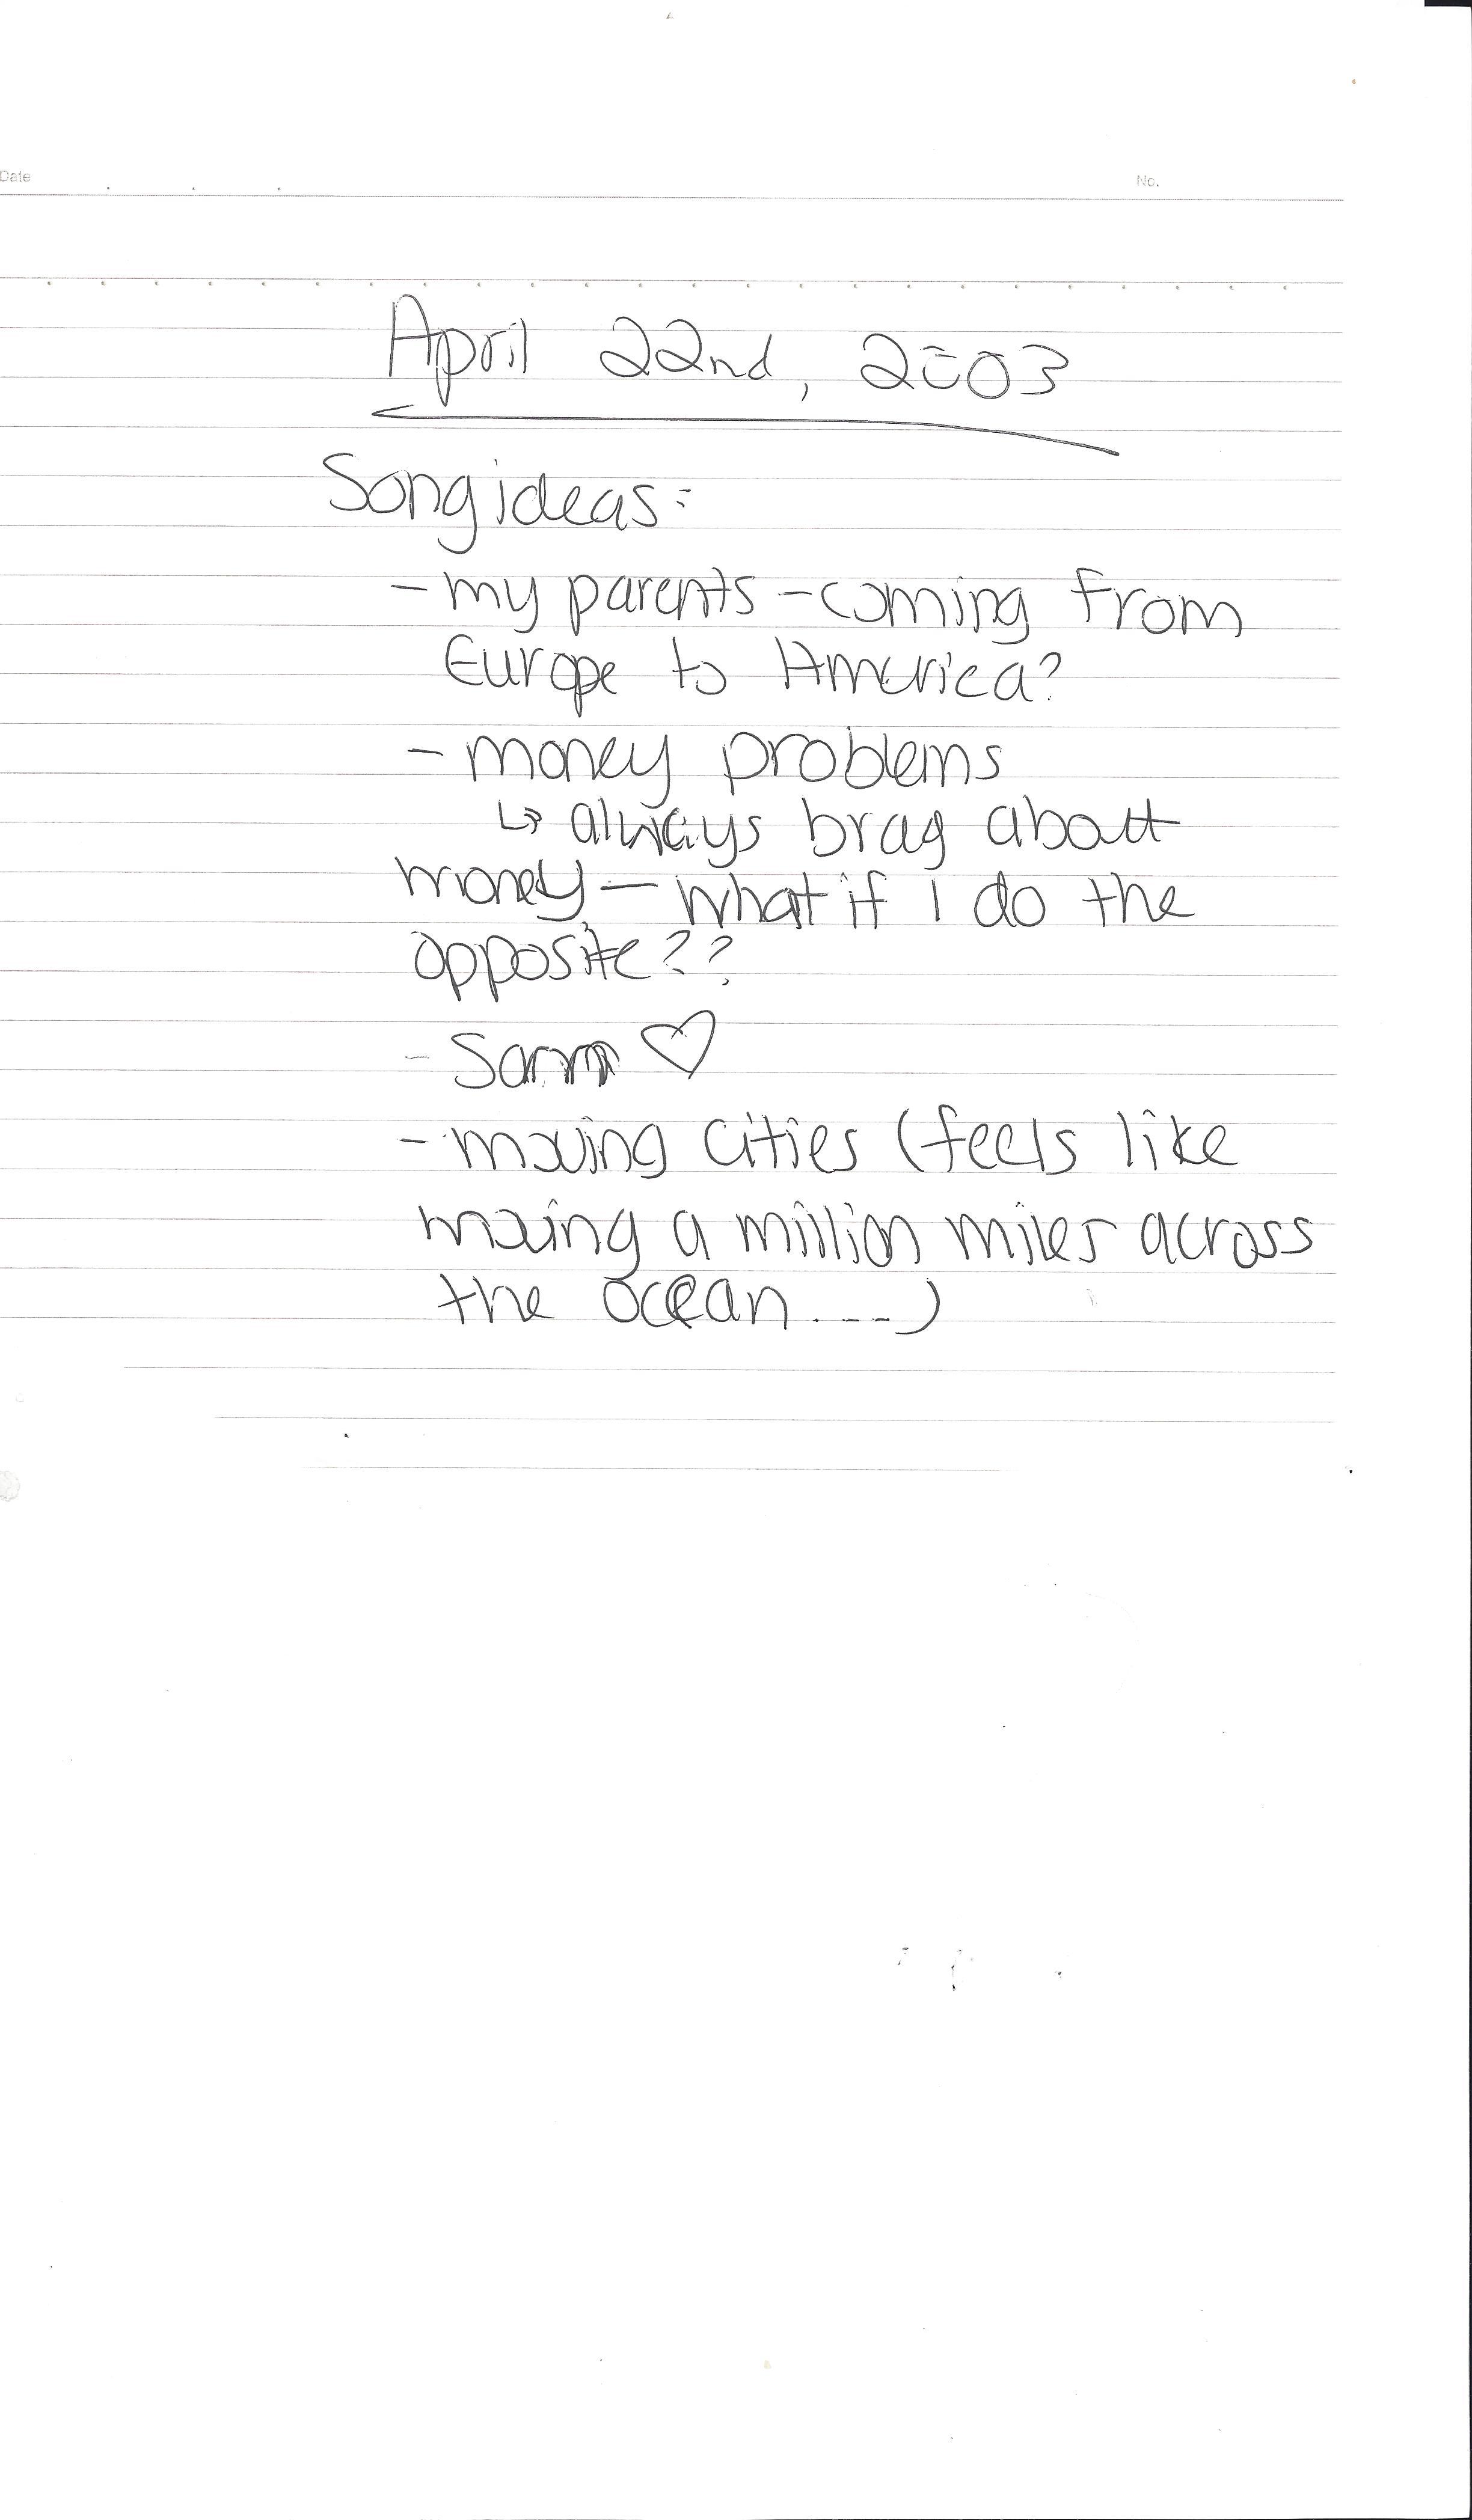 Date No.
April 22nd, 2003
Song ideas:
- my parents - coming from
Europe to America?
- money problems
↳ always brag about
money - what if I do the
opposite??
- Sam ♡
- moving cities (feels like
moving a million miles across
the ocean....)